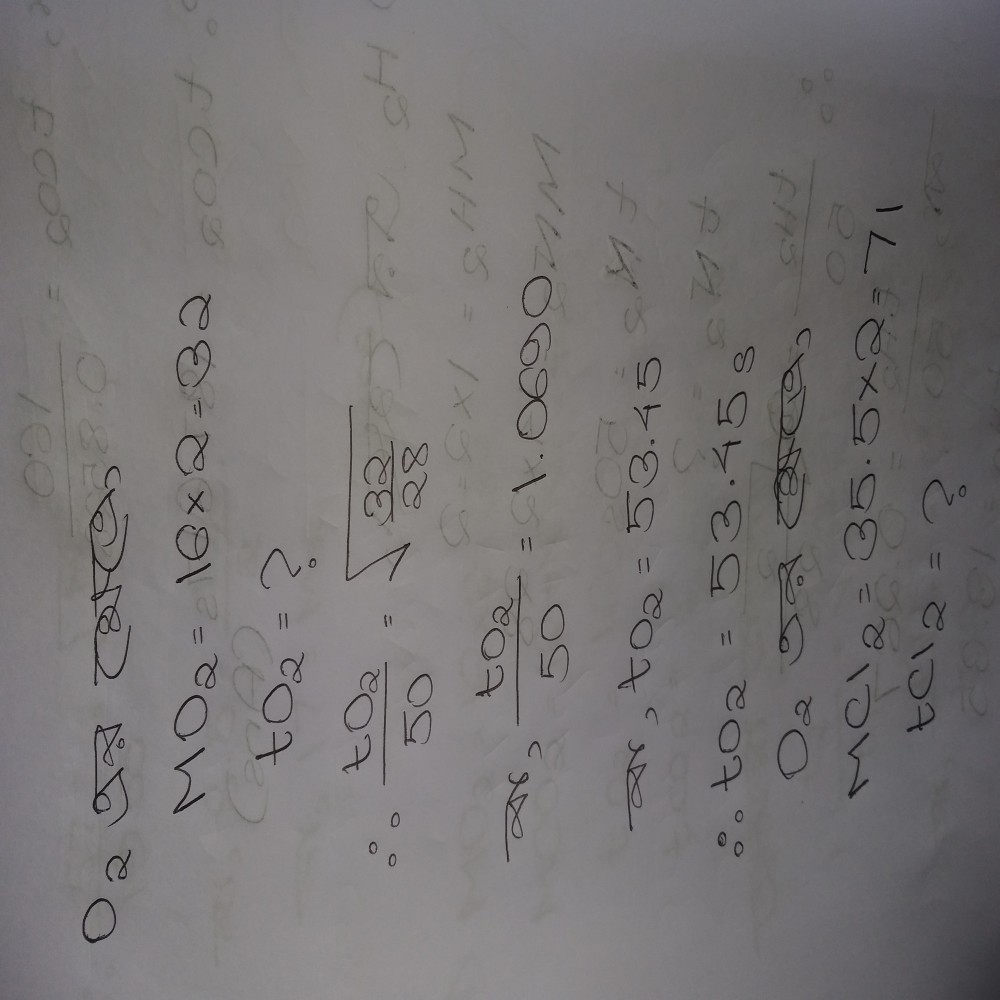 O2 এর ক্ষেত্রে,
MO2 = 16×2=32
tO2 = ?
∴ tO2/50 = √32/28
বা, tO2/50 = 1.0690
বা, tO2 = 53.45
∴ tO2 = 53.45 s
O2 এর ক্ষেত্রে,
MCl2 = 35.5×2=71
tCl2 = ?